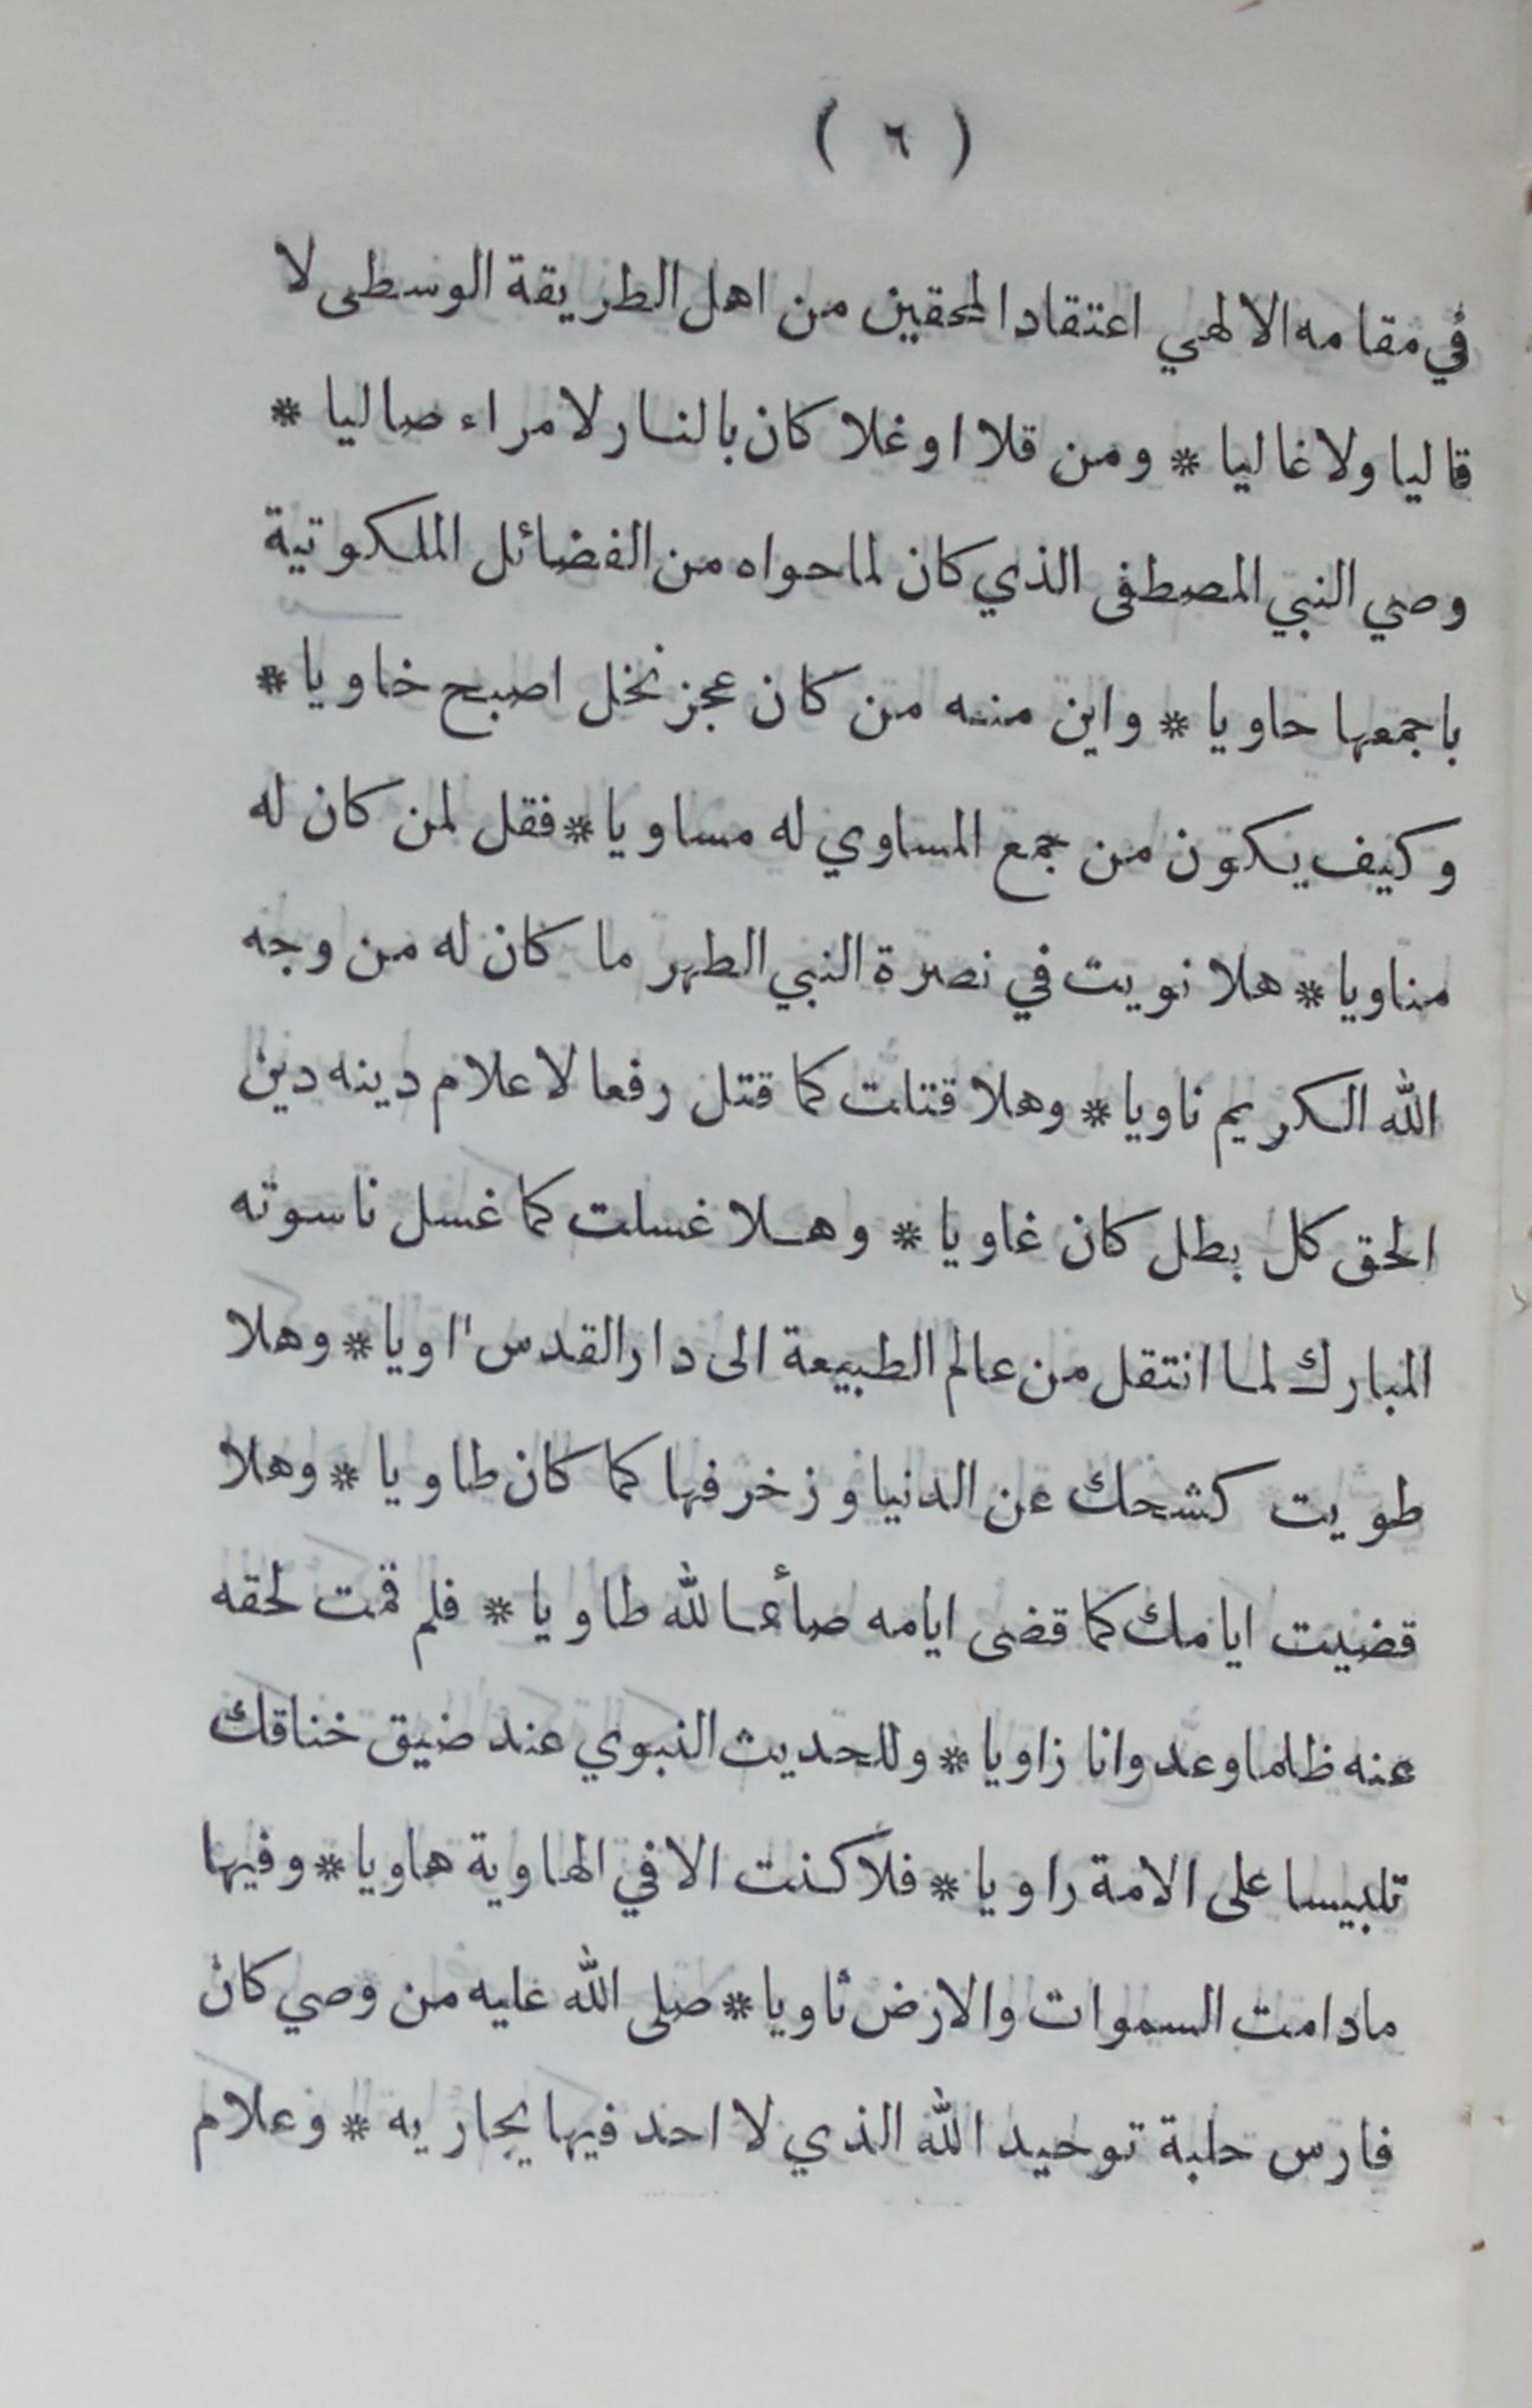 ( ٦ )
في مقامه الالهي اعتقاد المحقين من اهل الطريقة الوسطى لا
قاليا ولا غاليا * ومن قلا او غلا كان بالنار لا مراء صاليا *
وصي النبي المصطفى الذي كان لما حواه من الفضائل الملكوتية
باجمعها حاويا * واين منه من كان عجز نخل اصبح خاويا *
وكيف يكون من جمع المساوي له مساويا * فقل لمن كان له
مناويا * هلا نويت في نصرة النبي الطهر ما كان له من وجه
الله الكريم ناويا * وهلا قتلت كما قتل رفعا لاعلام دينه دين
الحق كل بطل كان غاويا * وهلا غسلت كما غسل ناسوته
المبارك لما انتقل من عالم الطبيعة الى دار القدس اويا * وهلا
طويت كشحك عن الدنيا وزخرفها كما كان طاويا * وهلا
قضيت ايامك كما قضى ايامه صائما لله طاويا * فلم قمت لحقه
عنه ظلما وعدوانا زاويا * وللحديث النبوي عند ضيق خناقك
تلبيسا على الامة راويا * فلا كنت الا في الهاوية هاويا * وفيها
مادامت السموات والارض ثاويا * صلى الله عليه من وصي كان
فارس حلبة توحيد الله الذي لا احد فيها يجاريه * وعلام